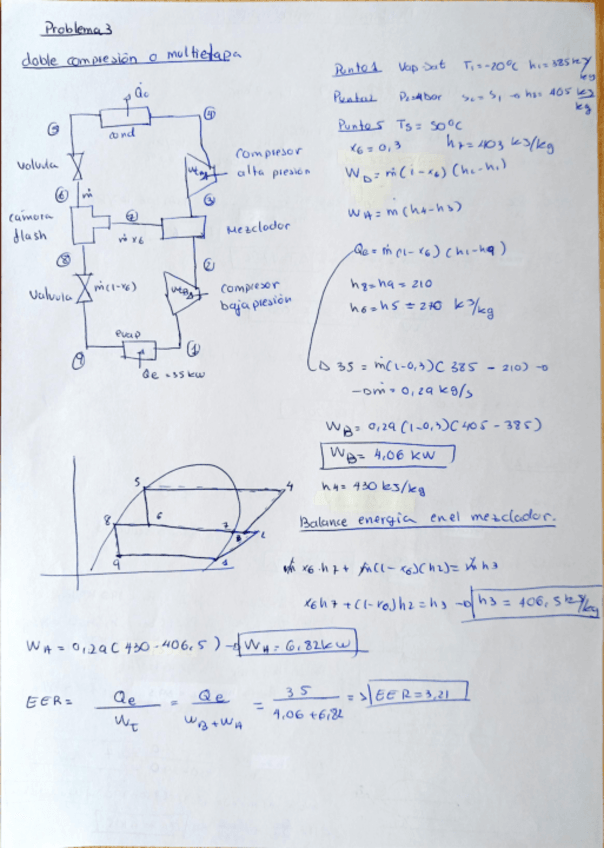 Problema 3
doble compresión o multietapa
Q̇c
cond
⑤
④
valvula
compresor
alta presión
⑥
ṁ
③
camara
flash
⑦
ṁ x6
Mezclador
⑧
②
Valvula
ṁ(1-x6)
compresor
baja presión
evap
⑨
①
Qe = 35 kw
Punto 1 Vap. Sat T1 = -20°C h1 = 385 kJ/kg
s2 = s1 → h2 = 405 kJ/kg
Punto 5 T5 = 50°C
x6 = 0,3
WB = ṁ(1-x6)(h2-h1)
WA = ṁ(h4-h3)
Qe = ṁ(1-x6)(h1-h9)
h8 = h9 = 210
h6 = h5 = 270 kJ/kg
35 = ṁ(1-0,3)(385 - 210) →
→ ṁ = 0,29 kg/s
WB = 0,29(1-0,3)(405-385)
WB = 4,06 kW
h4 = 430 kJ/kg
Balance energía en el mezclador.
ṁ x6·h7 + ṁ(1-x6)(h2) = ṁ h3
x6h7 + (1-x6)h2 = h3 → h3 = 406,5 kJ/kg
5
4
8
6
7
3
2
9
1
WA = 0,29(430-406,5) → WA = 6,82kw
EER = Qe/Wt = Qe/(WB+WA) = 35/(4,06+6,82) => EER = 3,21